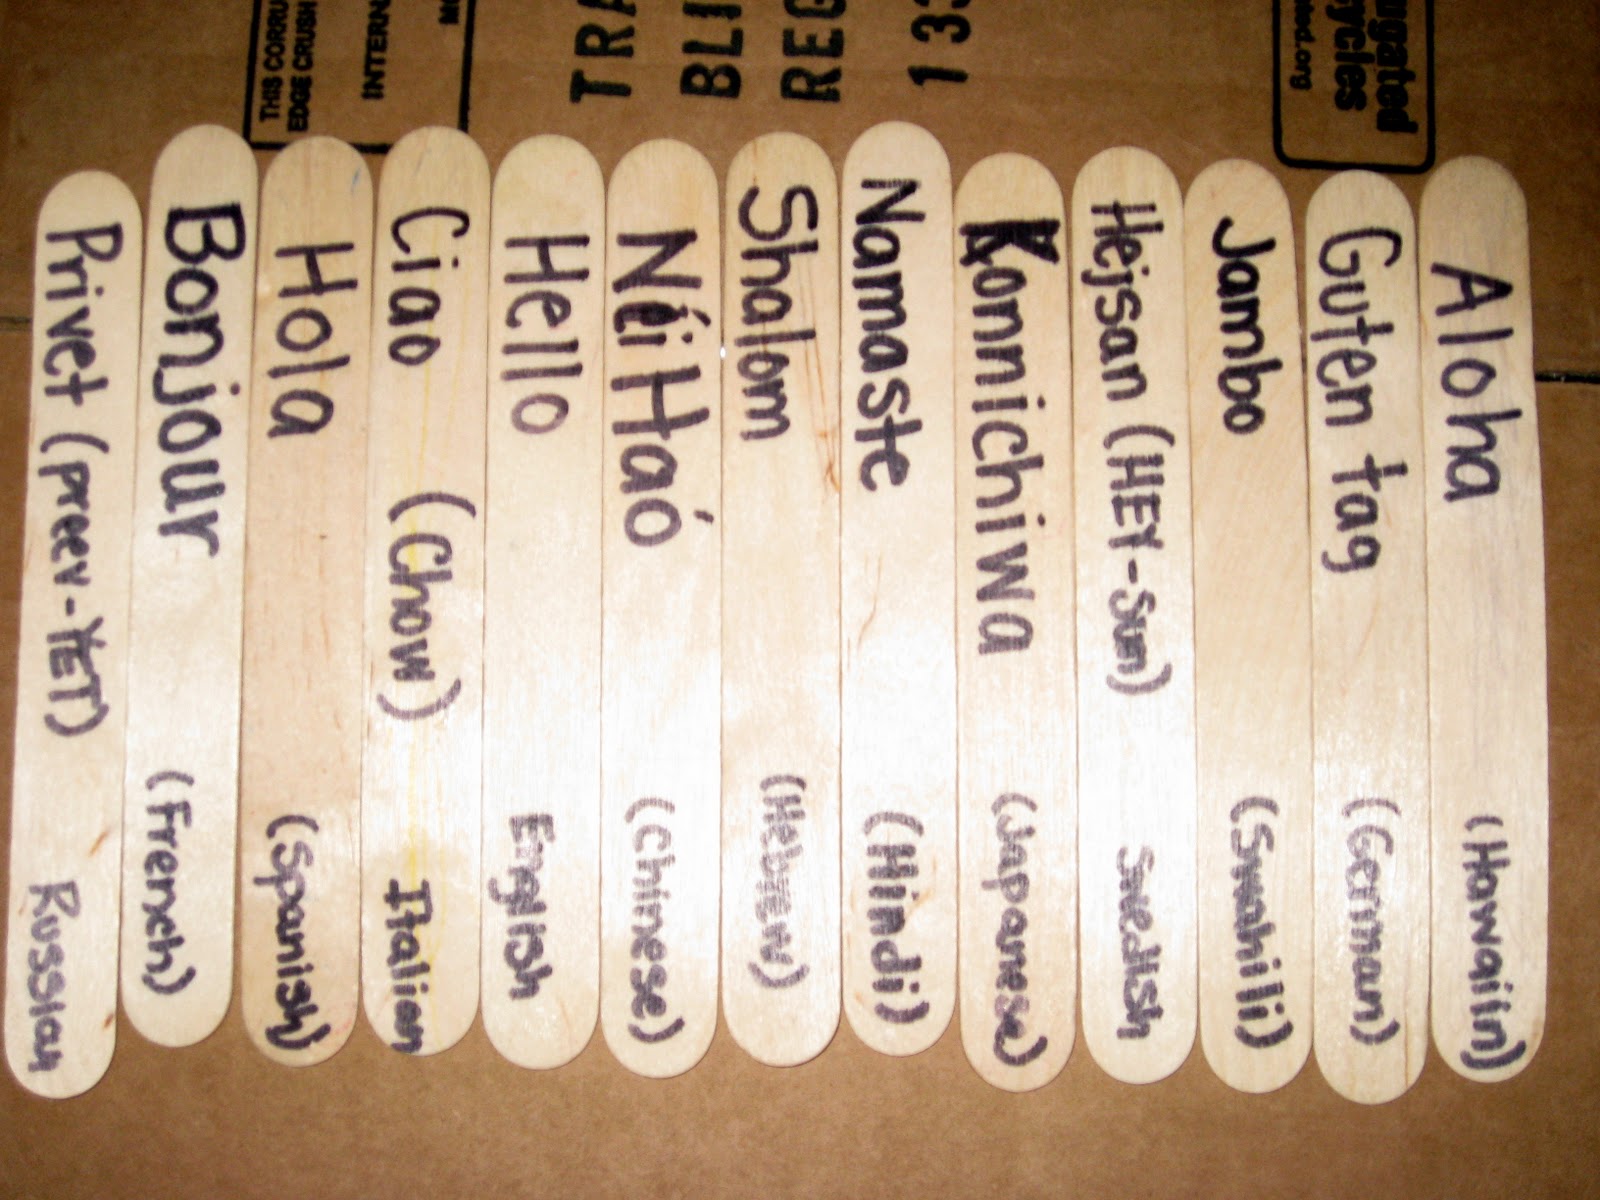 Aloha (Hawaiin)
Guten tag (German)
Jambo (Swahili)
Hejsan (HEY-sun) Swedish
Konnichiwa (Japanese)
Namaste (Hindi)
Shalom (Hebrew)
Ní Haó (Chinese)
Hello English
Ciao (Chow) Italian
Hola (Spanish)
Bonjour (French)
Privet (preev-YET) Russian
THIS CORRU
EDGE CRUSH
INTERNA
TRA
BLI
REG
133
ugated
ycles
ted.org